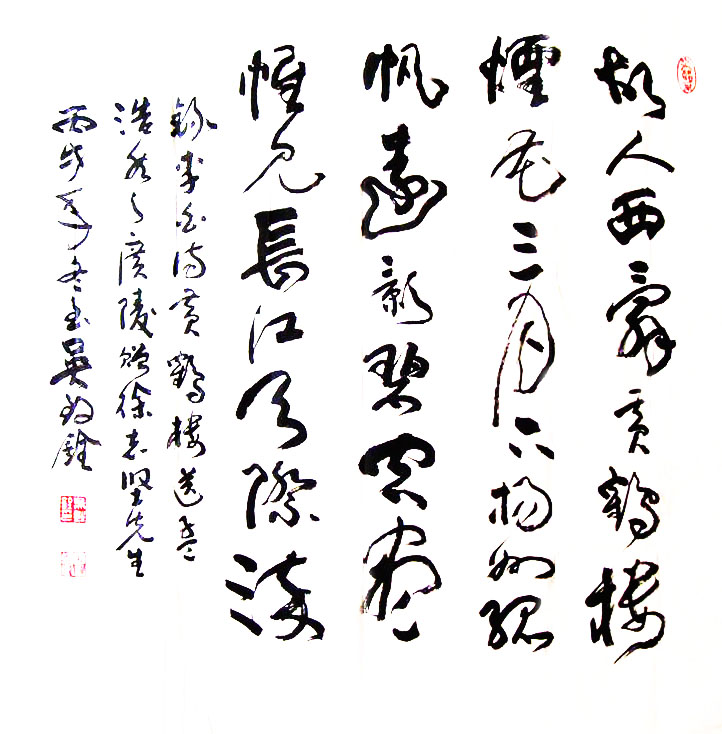 故人西辭黃鶴樓
煙花三月下揚州孤
帆遠影碧空盡
惟見長江天際流
錄李白詩黃鶴樓送孟
浩然之廣陵贈徐志堅先生
丙戌年冬至吳銓